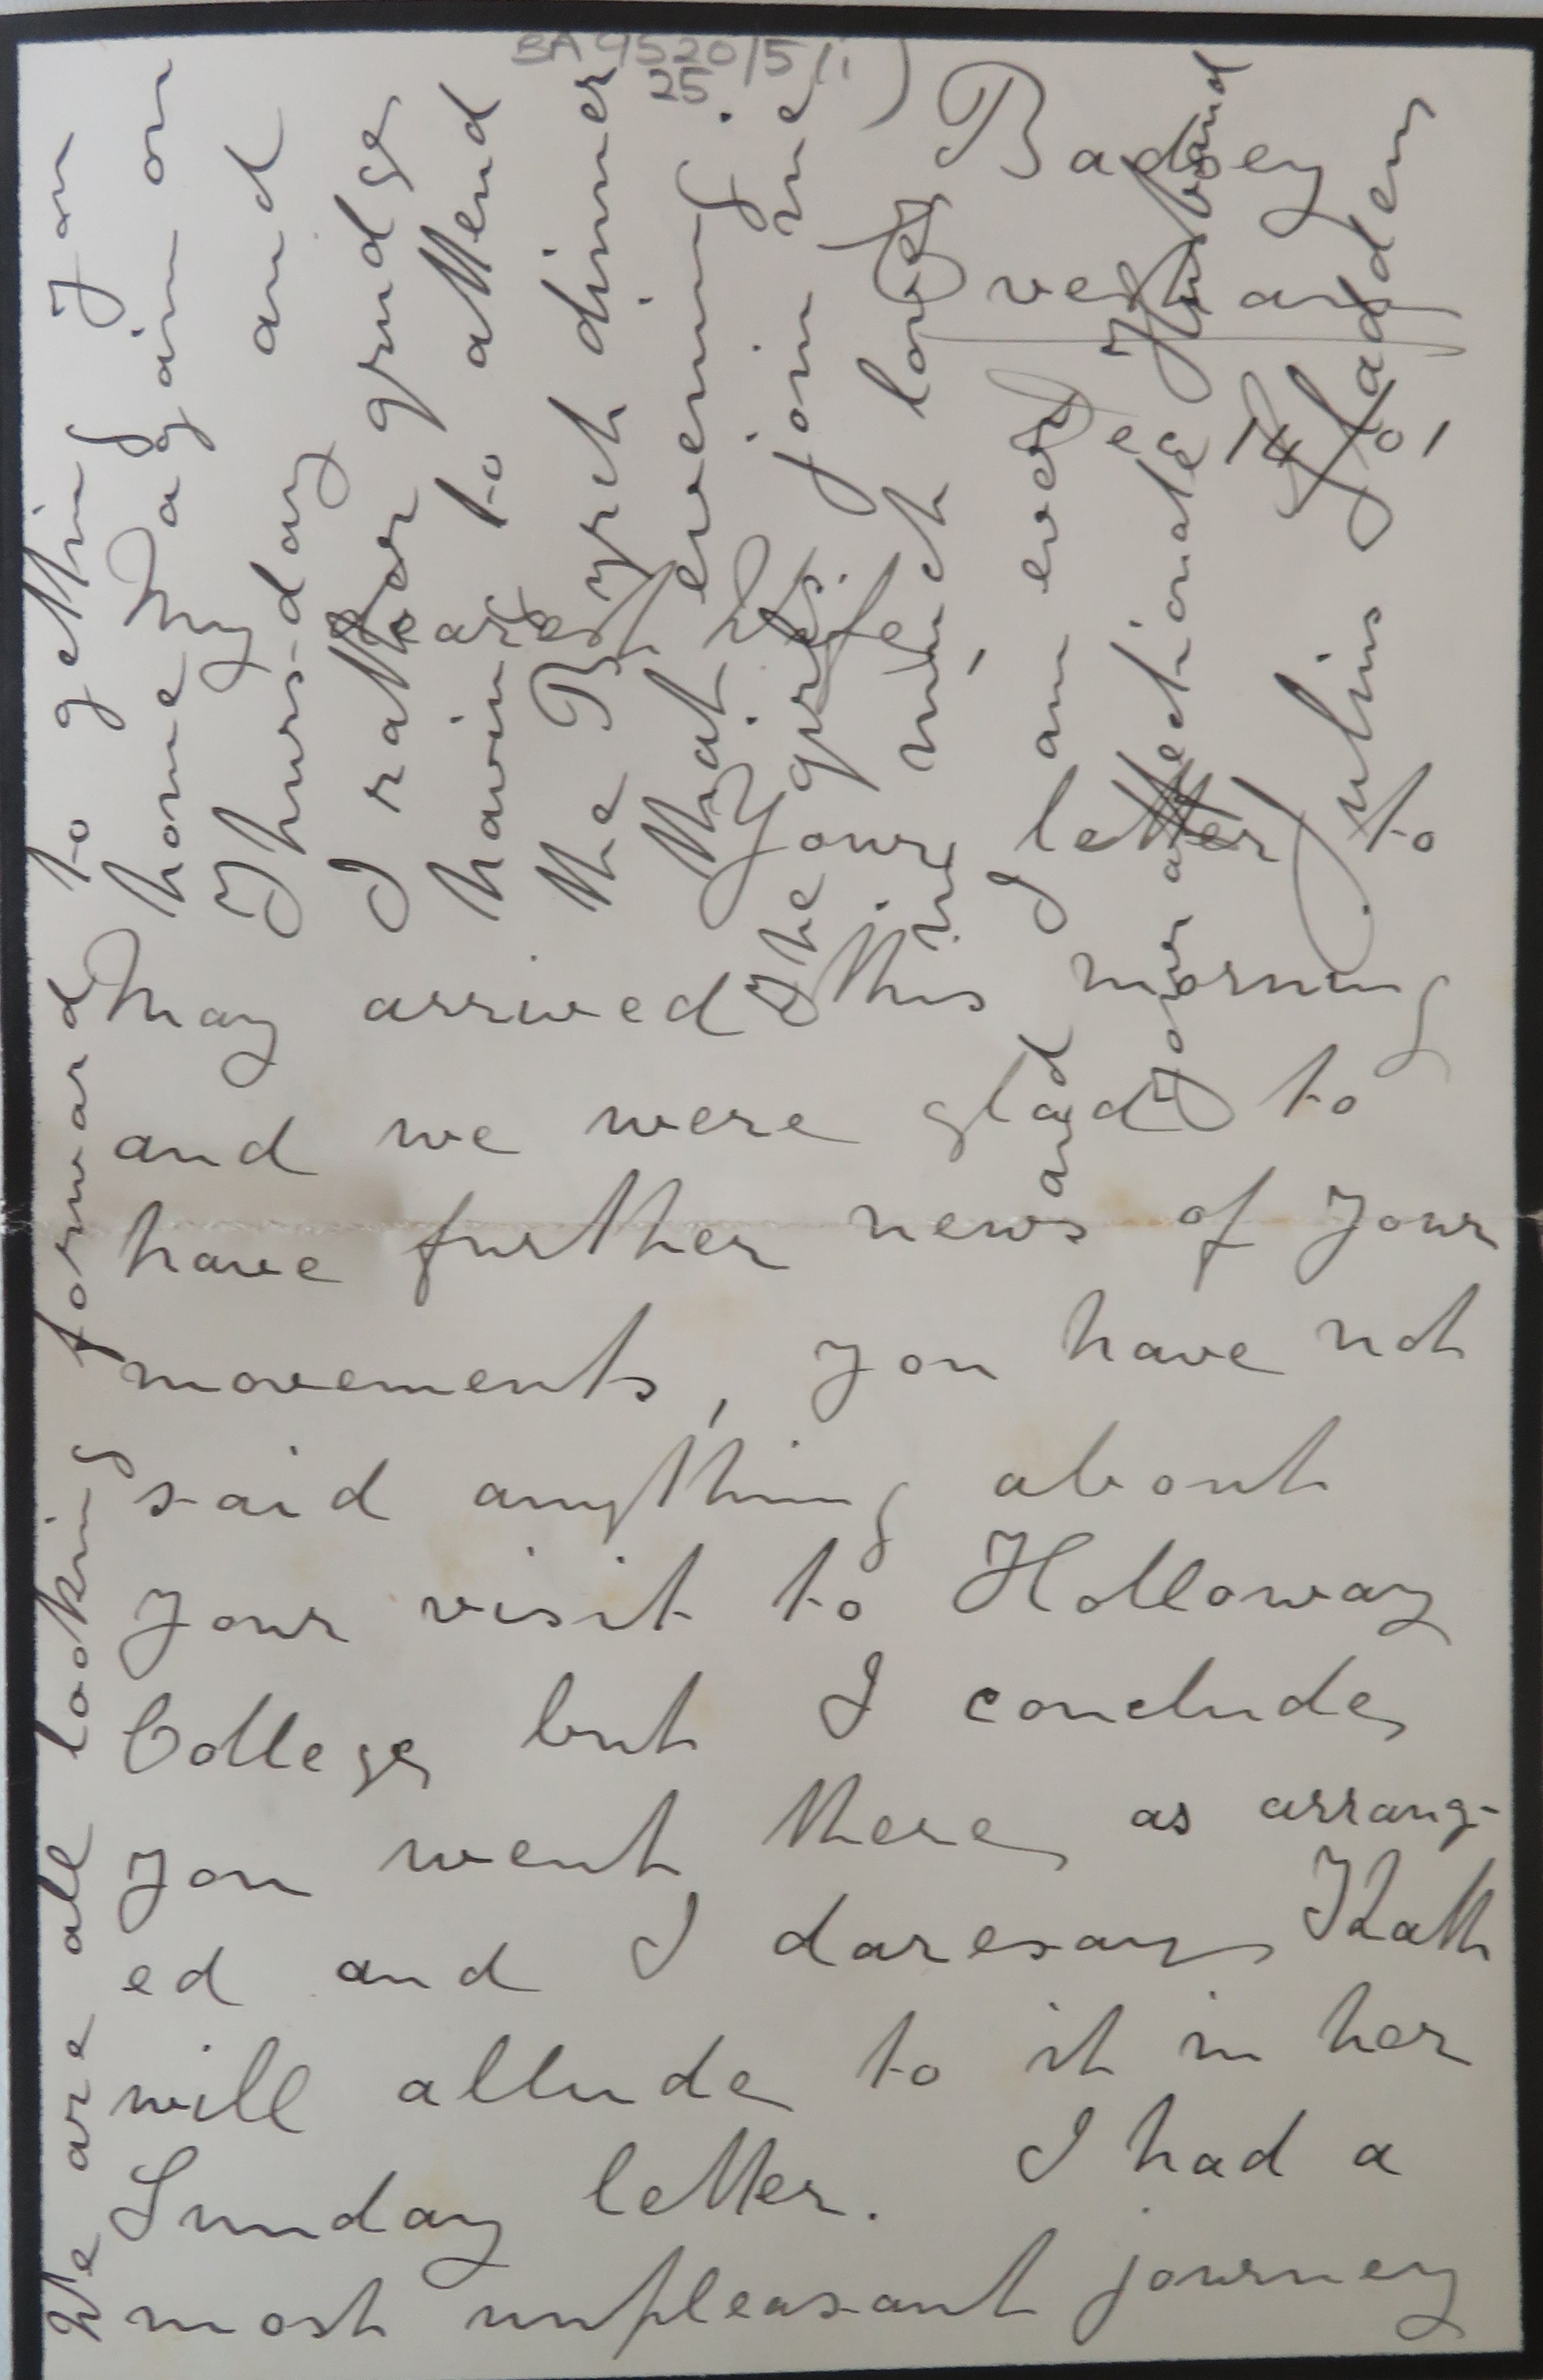 BA 9520/5/(i)
25
Badsey
Evesham
14/01
My dearest Wife
Your letter to
May arrived this morning
and we were glad to
have further news of your
movements, you have not
said anything about
your visit to Holloway
College but I conclude
you went there as arrang-
ed and I daresay Kath
will allude to it in her
Sunday letter. I had a
most unpleasant journey
We are all looking forward to getting you
home again on
Thursday and
I rather grudge
having to attend
the Byrch dinner
that evening.
The girls join me
in much love
and I am ever
your affectionate Husband
Julius Sladden